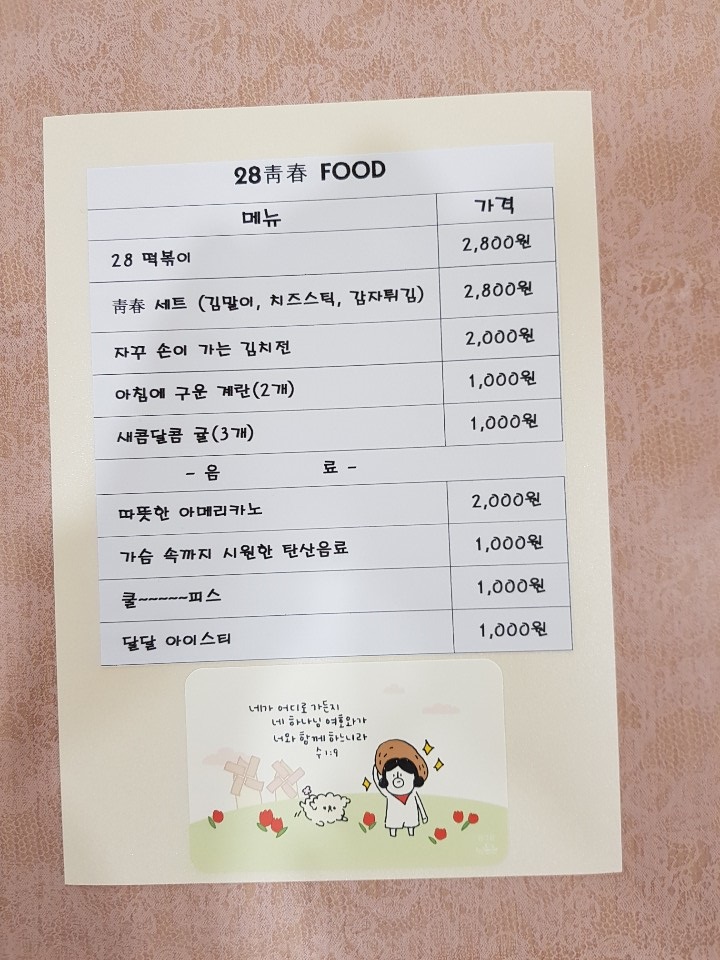 28靑春 FOOD
메뉴 가격
28 떡볶이 2,800원
靑春 세트 (김말이, 치즈스틱, 감자튀김) 2,800원
자꾸 손이 가는 김치전 2,000원
아침에 구운 계란(2개) 1,000원
새콤달콤 귤(3개) 1,000원
- 음 료 -
따뜻한 아메리카노 2,000원
가슴 속까지 시원한 탄산음료 1,000원
쿨~~~~~피스 1,000원
달달 아이스티 1,000원
네가 어디로 가든지
네 하나님 여호와가
너와 함께 하느니라
수 1:9